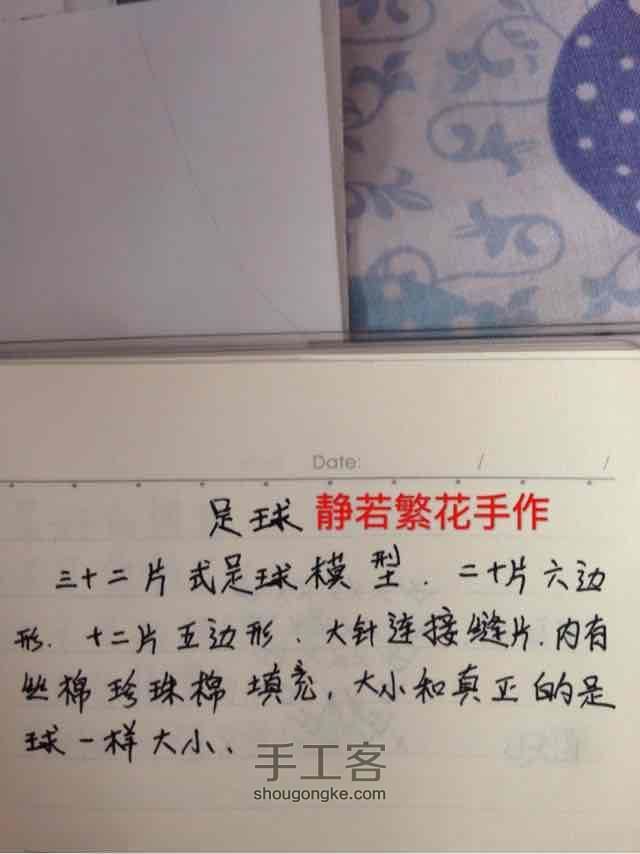 Date: / /
足球 静若繁花手作
三十二片式足球模型.二十片六边
形.十二片五边形.大针连接缝片.内有
丝棉珍珠棉填充,大小和真正的足
球一样大小、
手工客
shougongke.com